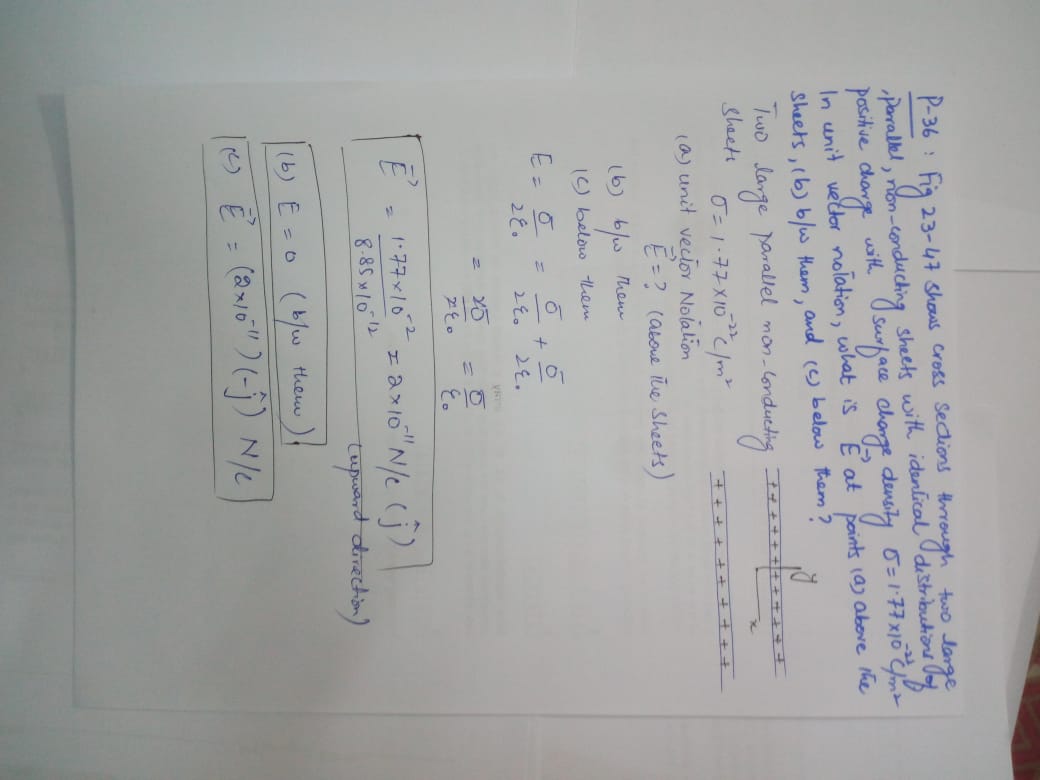 P-36 : Fig 23-47 shows cross sections through two large
parallel, non-conducting sheets with identical distributions of
positive charge with surface charge density σ = 1.77x10⁻²² C/m²
In unit vector notation, what is E⃗ at points (a) above the
sheets, (b) b/w them, and (c) below them?
Two large parallel non-conducting
sheets σ = 1.77x10⁻²² C/m²
+ + + + + + + + + + + +
y
x
+ + + + + + + + + + +
(a) unit vector Notation
E⃗ = ? (above the sheets)
(b) b/w them
(c) below them
E = σ/2ε₀ = σ/2ε₀ + σ/2ε₀
= 2σ/2ε₀ = σ/ε₀
E⃗ = 1.77x10⁻²/8.85x10⁻¹² = 2x10⁻¹¹ N/c (ĵ)
(upward direction)
(b) E = 0 (b/w them)
(c) E⃗ = (2x10⁻¹¹) (-ĵ) N/c